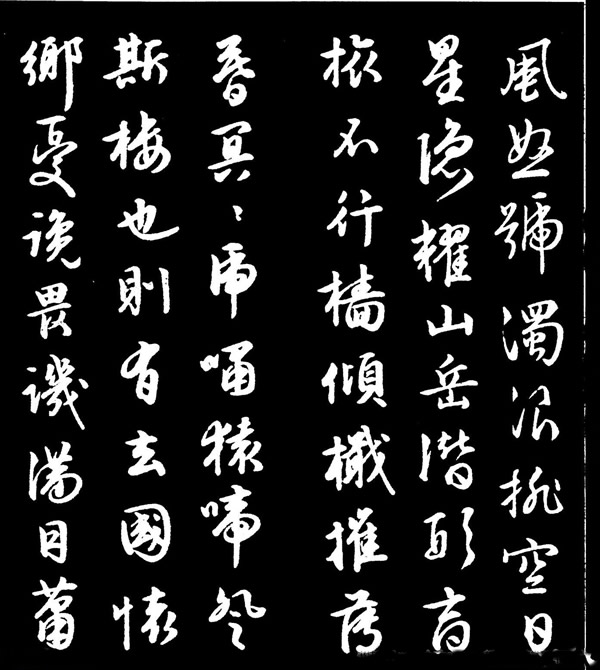 風怒號濁浪排空日
星隱耀山岳潛形商
旅不行檣傾檝摧薄
暮冥〻虎嘯猿啼登
斯樓也則有去國懷
鄉憂讒畏譏滿目蕭